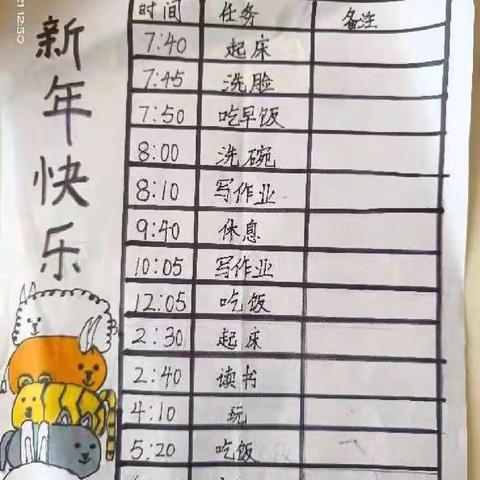 新年快乐
时间 任务 备注
7:40 起床
7:45 洗脸
7:50 吃早饭
8:00 洗碗
8:10 写作业
9:40 休息
10:05 写作业
12:05 吃饭
2:30 起床
2:40 读书
4:10 玩
5:20 吃饭